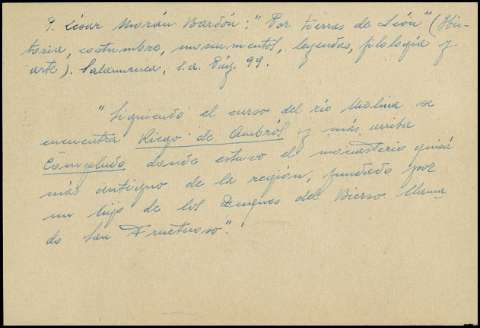 P. César Morán Bardón: "Por tierras de León" (His-
toria, costumbres, monumentos, leyendas, filología y
arte). Salamanca, s.a. Pág. 99.
"Siguiendo el curso del río Molina se
encuentra Riego de Ambrós y más arriba
Compludo donde estuvo el monasterio quizá
más antiguo de la región, fundado por
un hijo de los Duques del Bierzo llama
do San Fructuoso".